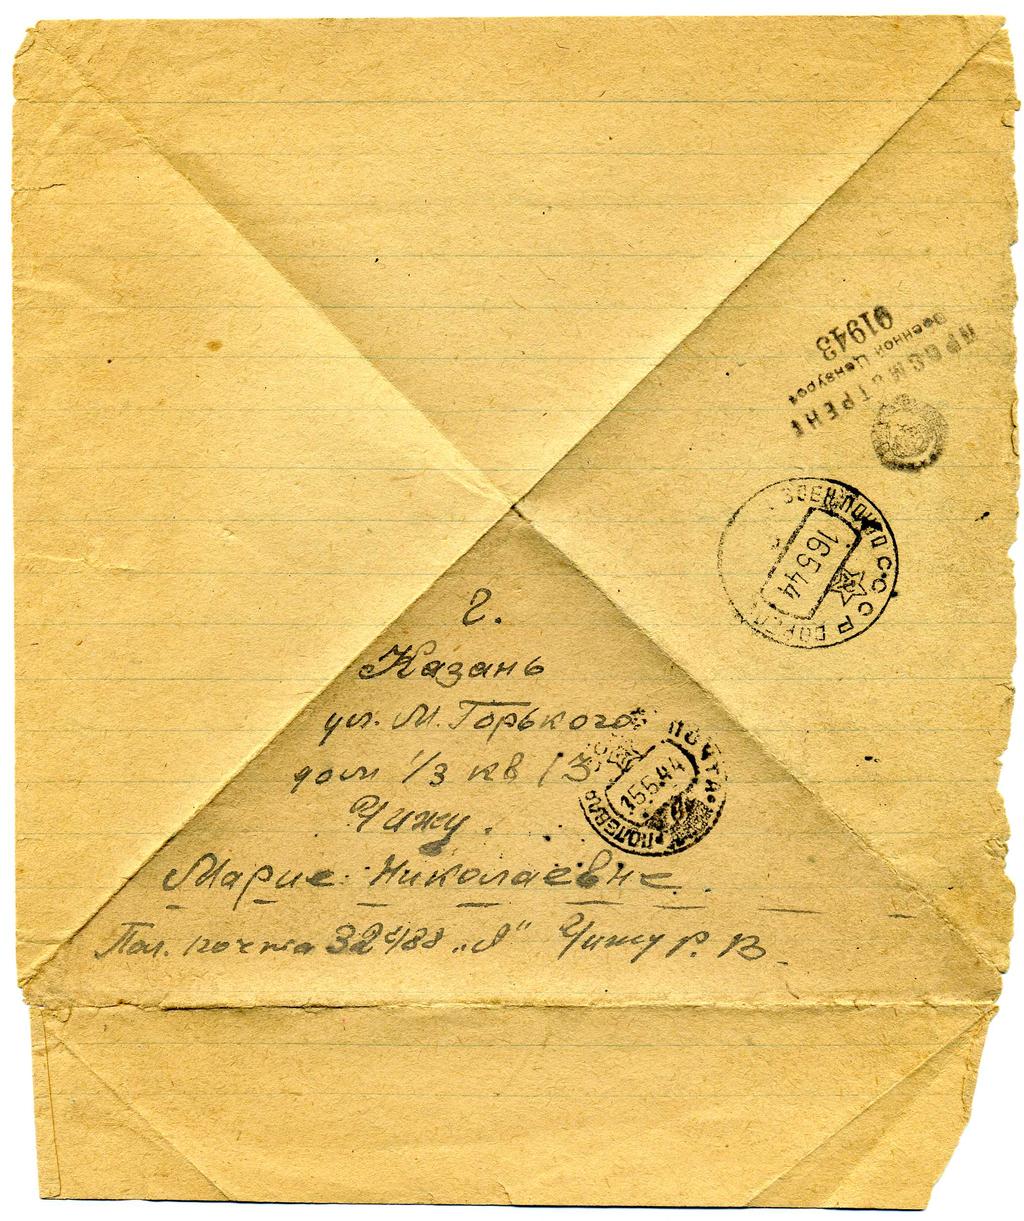 ПРОСМОТРЕНО
Военной Цензурой
01943
ВОЕН. ПОЧТА С.С.С.Р
16 5 44
г.
Казань
ул. М. Горького
дом 1/3 кв 13
Чижу.
Марие Николаевне
ПОЛЕВАЯ ПОЧТА
15 5 44
Пол. почта 32488 „Я" Чижу Р. В.